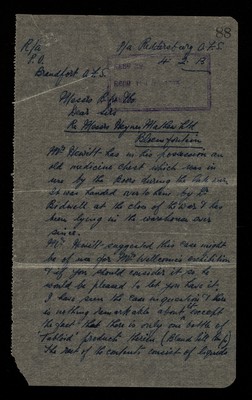 88
R/o
P.O.
Brandfort O.F.S.
P/a Petersburg O.F.S
4 2 13
Messrs B W & Co
Dear Sirs
Re Messrs Heynes Mathew Ltd
Bloemfontein
Mr Hewitt has in his possession an
old medicine chest which was in
use by the Boers during the late war,
it was handed over to him by Dr
Bidwell at the close of the war & has
been lying in the warehouse ever
since.
Mr Hewitt suggested this case might
be of use for Mr Wellcome's exhibition
& if you should consider it so he
would be pleased to let you have it.
I have seen the case in question & there
is nothing remarkable about except
the fact that there is only one bottle of
"Tabloid" products therein
The rest of the contents consist of liquids